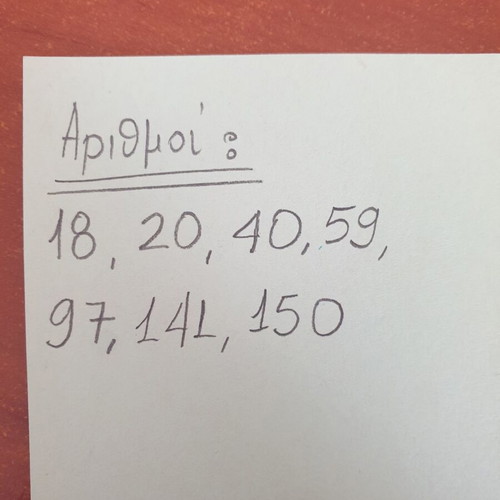 Αριθμοί:
18, 20, 40, 59,
97, 141, 150